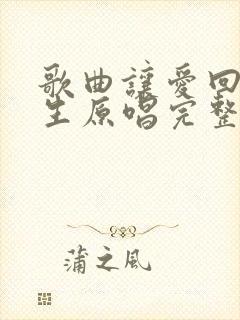 歌曲讓愛回
生原唱完整
蒲之风